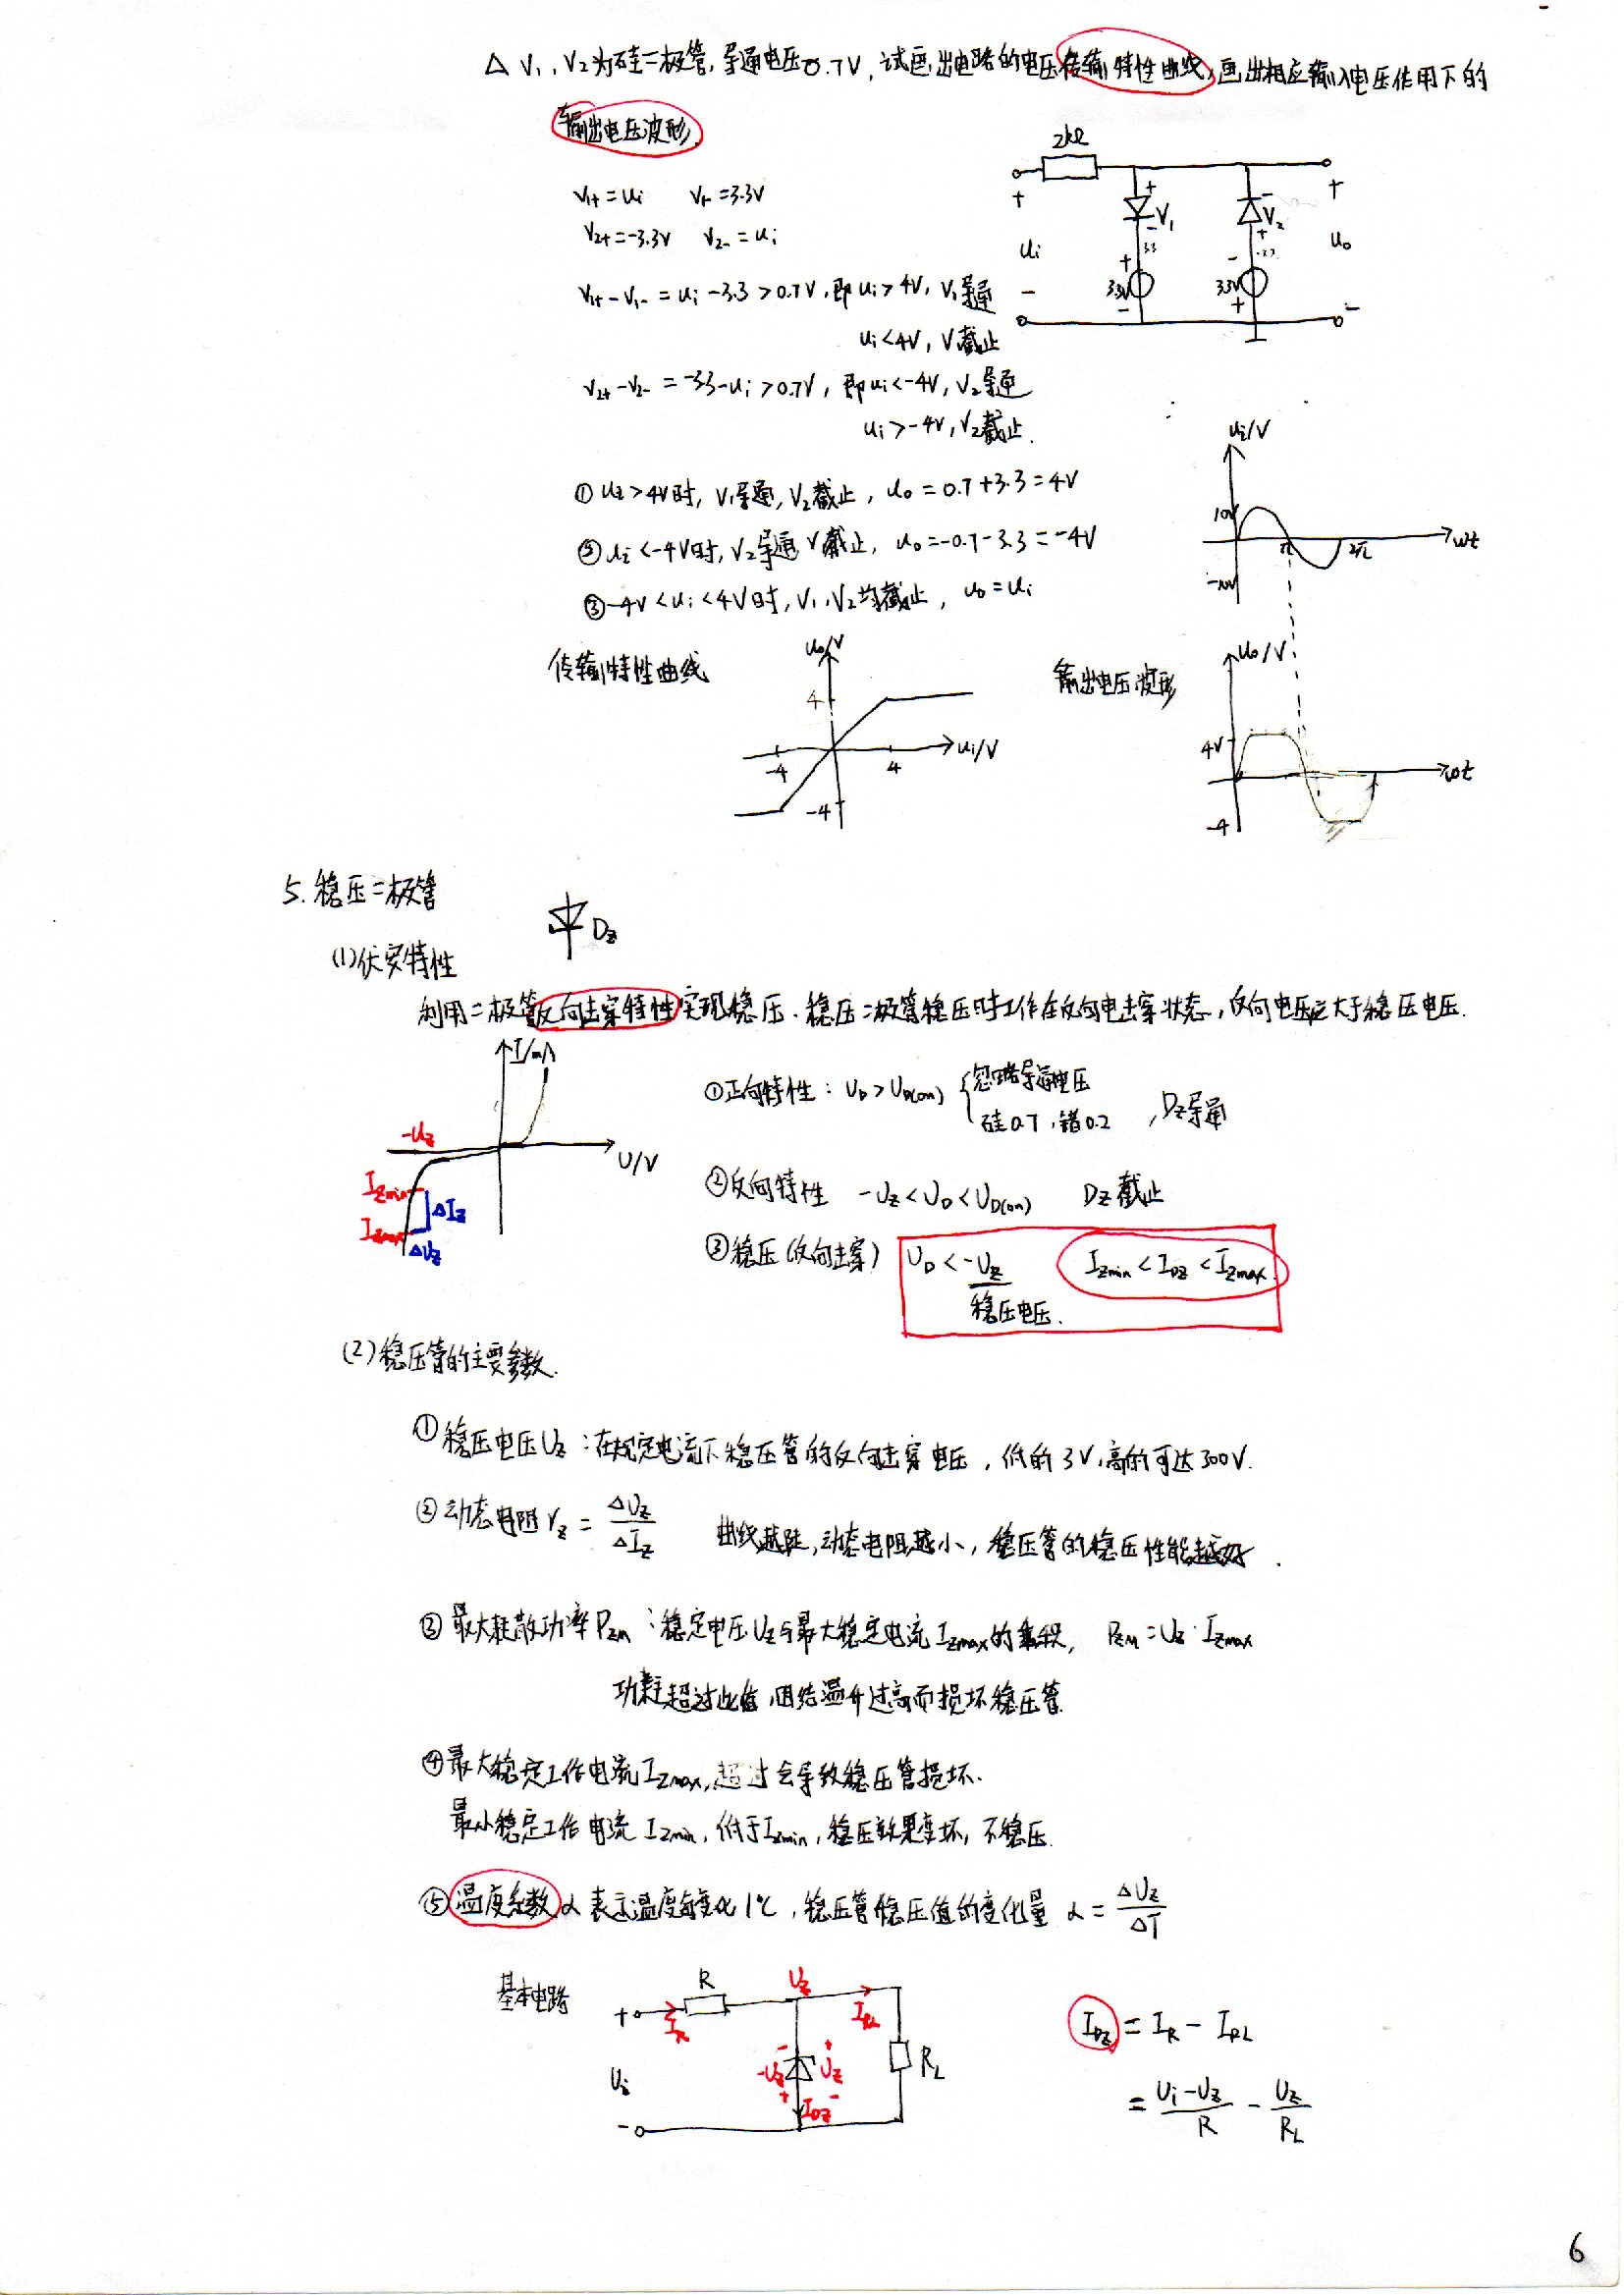 △ V₁、V₂为硅二极管,导通电压0.7V,试画出电路的电压传输特性曲线,画出相应输入电压作用下的
输出电压波形.
V₁₊=ui V₁₋=3.3V
V₂₊=-3.3V V₂₋=ui
V₁₊-V₁₋=ui-3.3>0.7V,即ui>4V,V₁导通
ui<4V,V₁截止
V₂₊-V₂₋=-3.3-ui>0.7V,即ui<-4V,V₂导通
ui>-4V,V₂截止.
2kΩ
+ + - +
V₁ V₂
- +
3.3
ui uo
+ -
3.3V 3.3V
- - + -
①ui>4V时,V₁导通,V₂截止,uo=0.7+3.3=4V
②ui<-4V时,V₂导通V₁截止,uo=-0.7-3.3=-4V
③-4V<ui<4V时,V₁、V₂均截止,uo=ui
ui/V
10V
π 2π ωt
-10V
传输特性曲线
uo/V
4
-4 4 ui/V
-4
输出电压波形
uo/V
4V
ωt
-4
5.稳压二极管
Dz
(1)伏安特性
利用二极管反向击穿特性实现稳压.稳压二极管稳压时工作在反向电击穿状态,反向电压应大于稳压电压.
I/mA
-Uz
U/V
Izmin
ΔIz
Izmax
ΔUz
①正向特性:UD>UD(on) {忽略导通电压
硅0.7,锗0.2 ,Dz导通
②反向特性 -Uz<UD<UD(on) Dz截止
③稳压(反向击穿) UD<-Uz Izmin<IDz<Izmax.
稳压电压.
(2)稳压管的主要参数.
①稳压电压Uz:在规定电流下稳压管的反向击穿电压,低的3V,高的可达300V.
②动态电阻rz=ΔUz/ΔIz 曲线越陡,动态电阻越小,稳压管的稳压性能越好.
③最大耗散功率PZM:稳定电压Uz与最大稳定电流Izmax的乘积, PZM=Uz·Izmax
功耗超过此值,因结温升过高而损坏稳压管.
④最大稳定工作电流Izmax,超过会导致稳压管损坏.
最小稳定工作电流Izmin,低于Izmin,稳压效果变坏,不稳压.
⑤温度系数α表示温度每变化1℃,稳压管稳压值的变化量 α=ΔUz/ΔT
基本电路
R Uz
+ IR IRL
- +
Ui -Uz Uz RL
+ -
IDz
-
IDz=IR-IRL
=(Ui-Uz)/R-Uz/RL
6